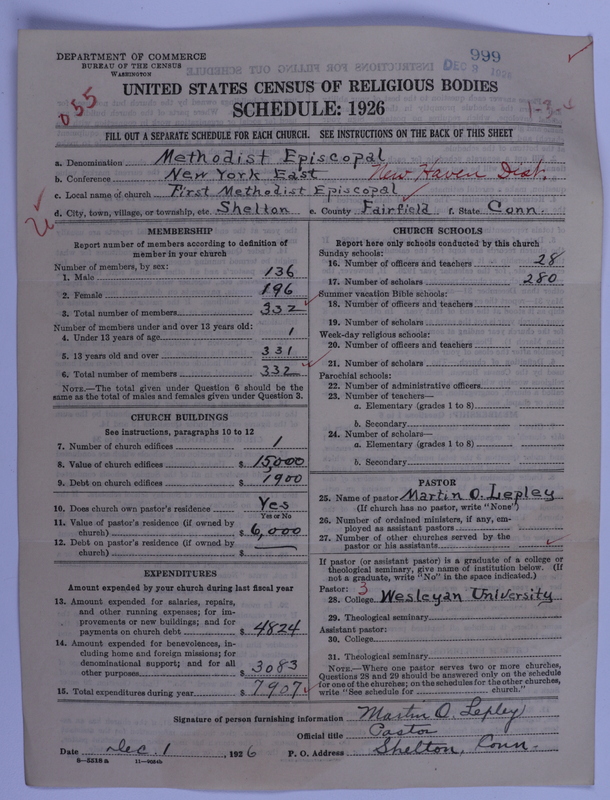 DEPARTMENT OF COMMERCE
BUREAU OF THE CENSUS
WASHINGTON
999
DEC
055
UNITED STATES CENSUS OF RELIGIOUS BODIES
SCHEDULE: 1926
1-3-4
FILL OUT A SEPARATE SCHEDULE FOR EACH CHURCH. SEE INSTRUCTIONS ON THE BACK OF THIS SHEET
a. Denomination Methodist Episcopal
b. Conference New York East New Haven Dist.
c. Local name of church First Methodist Episcopal
d. City, town, village, or township, etc. Shelton e. County Fairfield f. State Conn.
MEMBERSHIP
Report number of members according to definition of
member in your church
Number of members, by sex:
1. Male 136
2. Female 196
3. Total number of members 332
Number of members under and over 13 years old:
4. Under 13 years of age 1
5. 13 years old and over 331
6. Total number of members 332
NOTE.—The total given under Question 6 should be the
same as the total of males and females given under Question 3.
CHURCH BUILDINGS
See instructions, paragraphs 10 to 12
7. Number of church edifices 1
8. Value of church edifices $ 15,000
9. Debt on church edifices $ 1900
10. Does church own pastor's residence Yes
Yes or No
11. Value of pastor's residence (if owned by
church) $ 6,000
12. Debt on pastor's residence (if owned by
church) $ —
EXPENDITURES
Amount expended by your church during last fiscal year
13. Amount expended for salaries, repairs,
and other running expenses; for im-
provements or new buildings; and for
payments on church debt $ 4824
14. Amount expended for benevolences, in-
cluding home and foreign missions; for
denominational support; and for all
other purposes $ 3083
15. Total expenditures during year $ 7907
CHURCH SCHOOLS
Report here only schools conducted by this church
Sunday schools:
16. Number of officers and teachers 28
17. Number of scholars 280
Summer vacation Bible schools:
18. Number of officers and teachers
19. Number of scholars
Week-day religious schools:
20. Number of officers and teachers
21. Number of scholars
Parochial schools:
22. Number of administrative officers
23. Number of teachers—
a. Elementary (grades 1 to 8)
b. Secondary
24. Number of scholars—
a. Elementary (grades 1 to 8)
b. Secondary
PASTOR
25. Name of pastor Martin O. Lepley
(If church has no pastor, write "None")
26. Number of ordained ministers, if any, em-
ployed as assistant pastors
27. Number of other churches served by the
pastor or his assistants
If pastor (or assistant pastor) is a graduate of a college or
theological seminary, give name of institution below. (If
not a graduate, write "No" in the space indicated.)
Pastor: 3
28. College Wesleyan University
29. Theological seminary
Assistant pastor:
30. College
31. Theological seminary
NOTE.—Where one pastor serves two or more churches,
Questions 28 and 29 should be answered only on the schedule
for one of the churches; on the schedules for the other churches,
write "See schedule for church."
Signature of person furnishing information Martin O. Lepley
Official title Pastor
Date Dec. 1, 1926 P. O. Address Shelton, Conn.
8—5518a 11—9034b